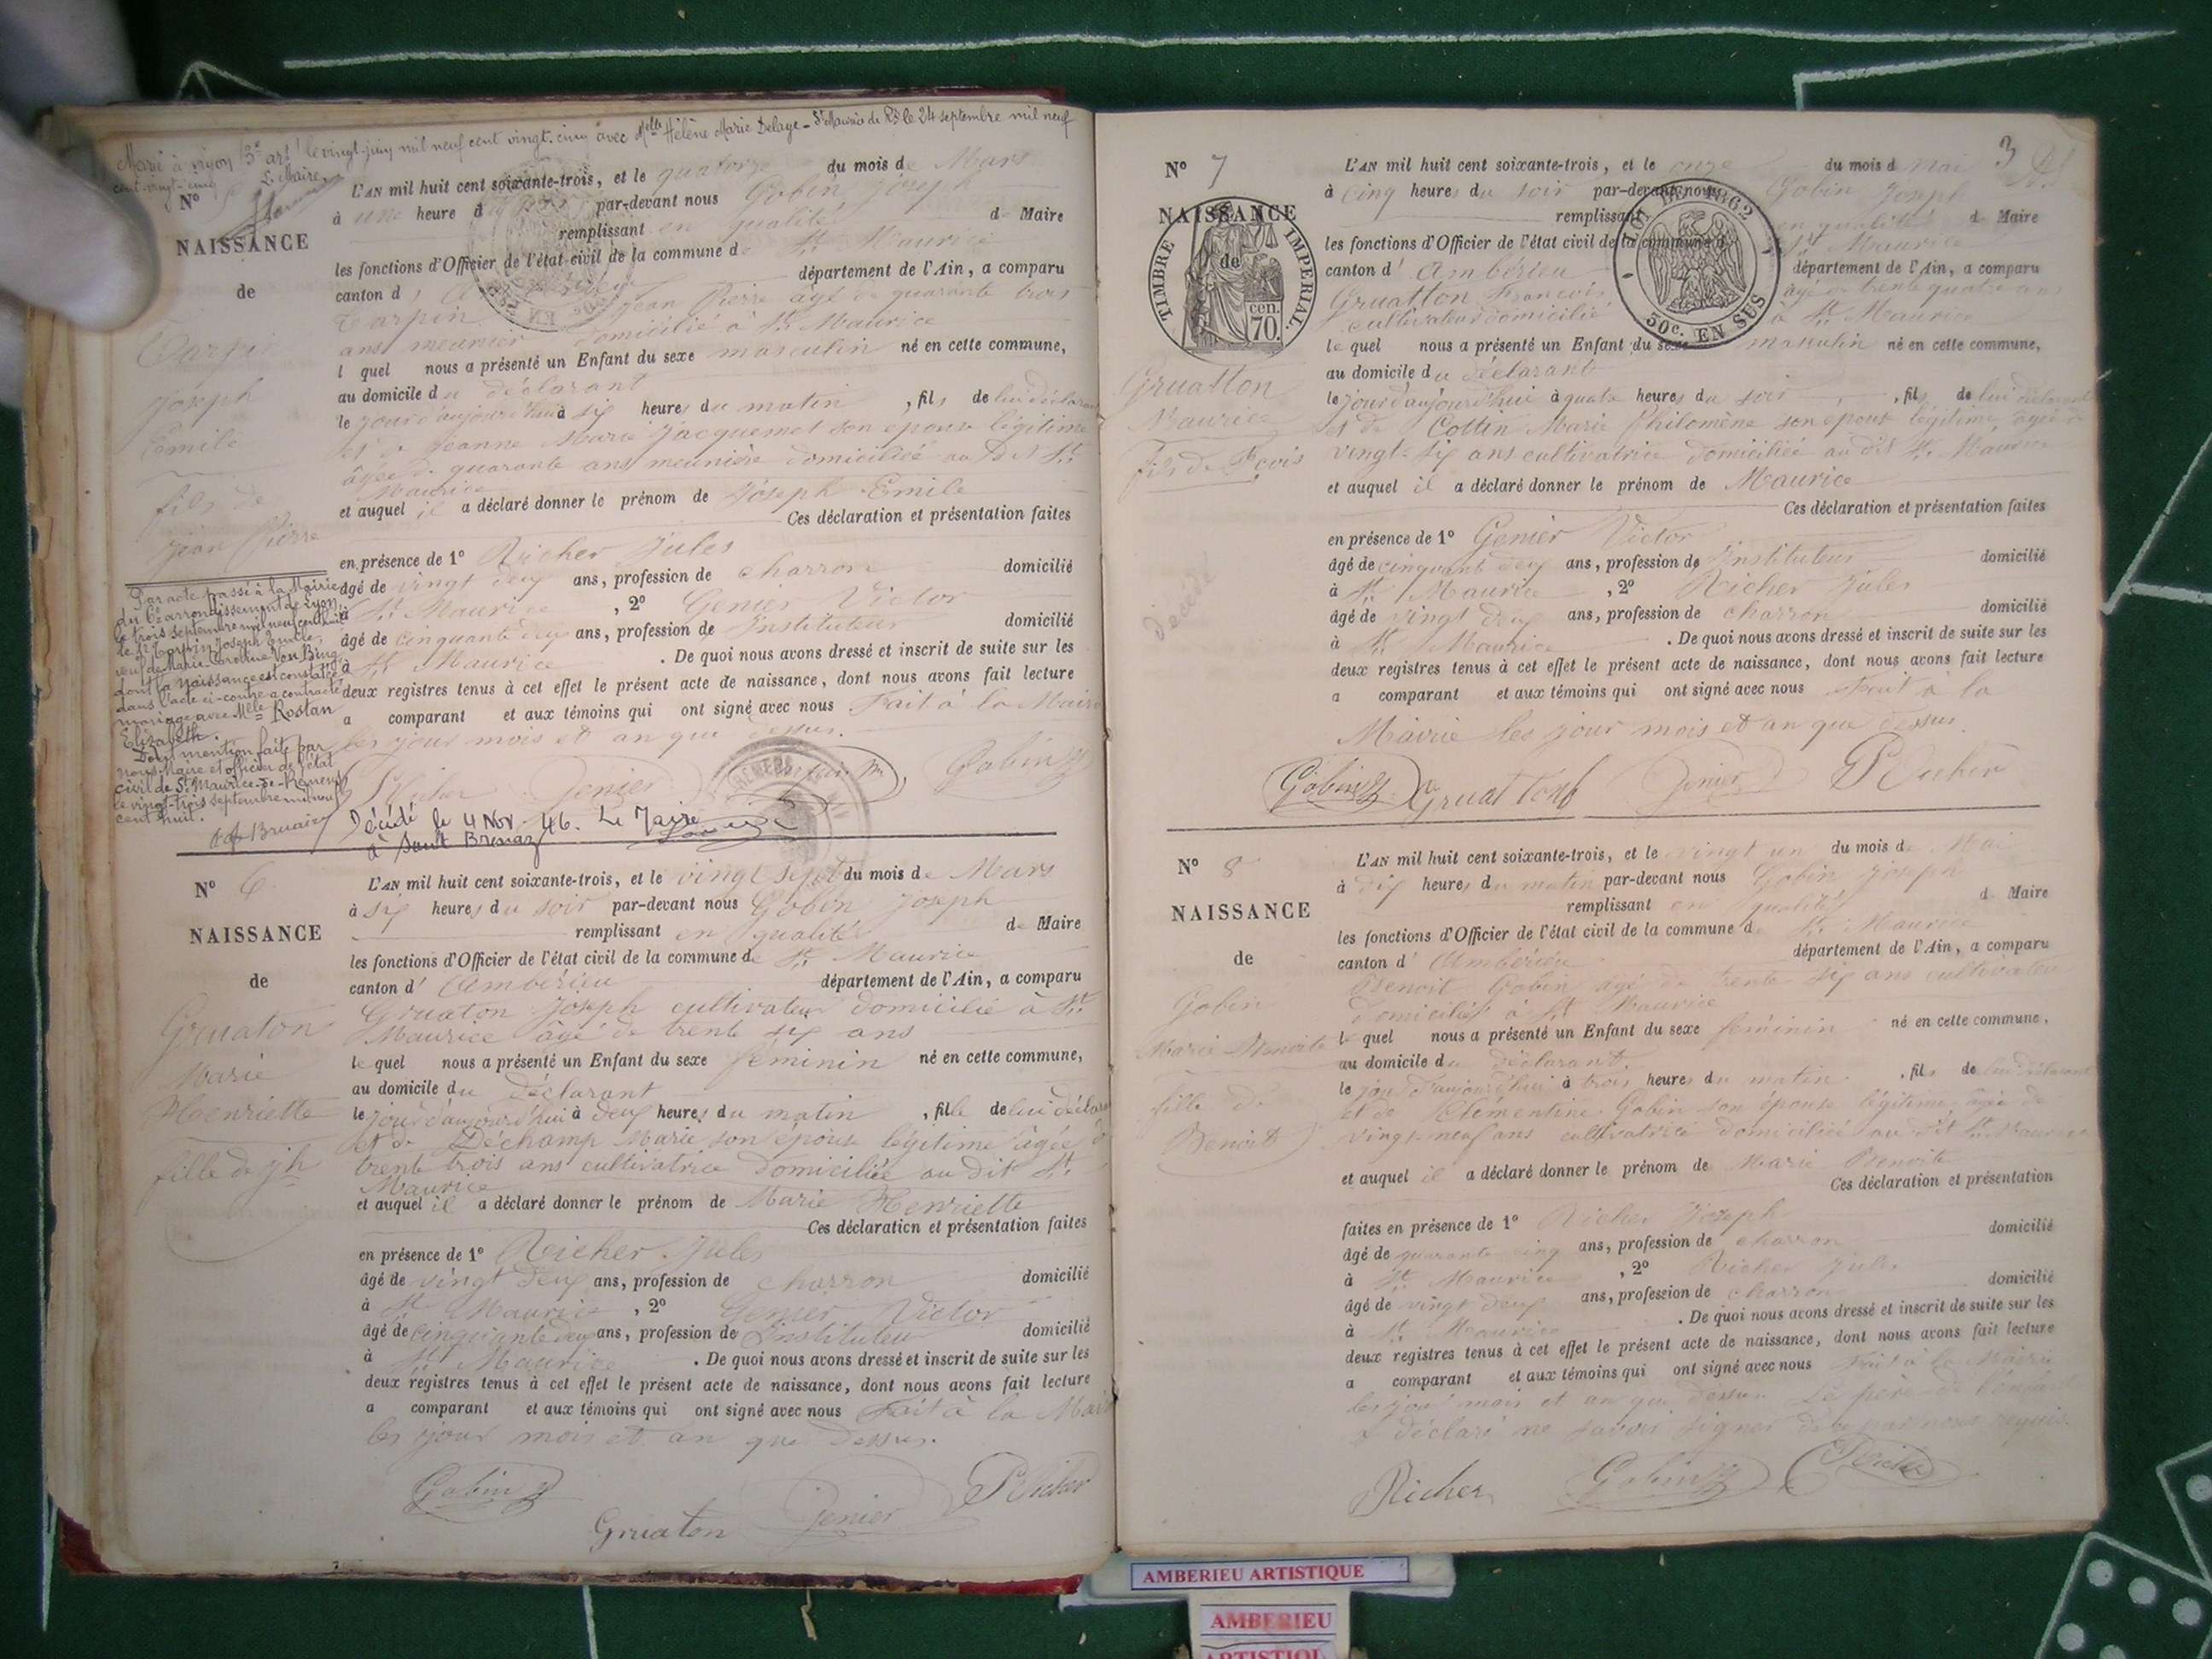 Marié à Lyon (3e arrt) le vingt-juin mil neuf cent vingt-cinq avec Melle Hélène Marie Delaye - St Maurice de Rs le 24 septembre mil neuf
cent vingt-cinq
Le Maire,
N°
NAISSANCE
de
Tarpin
Joseph
Emile
fils de
Jean Pierre
Par acte passé à la Mairie
du 6e arrondissement de Lyon,
le trois septembre mil neuf cent huit
le Sr Tarpin Joseph Emile,
veuf de Marie-Caroline Von Bing,
dont la naissance est constatée
dans l'acte ci-contre a contracté
mariage avec Melle Rostan
Elizabeth.
Dont mention faite par
nous Maire et officier de l'état
civil de St Maurice-de-Rémens
le vingt-trois septembre mil neuf
cent huit.
L'AN mil huit cent soixante-trois, et le quatorze du mois de Mars
à une heure du soir par-devant nous Gobin Joseph
remplissant en qualité de Maire
les fonctions d'Officier de l'état civil de la commune de St Maurice
canton d' département de l'Ain, a comparu
Tarpin Jean Pierre âgé de quarante trois
ans meunier domicilié à St Maurice
l quel nous a présenté un Enfant du sexe masculin né en cette commune,
au domicile du déclarant
le jour d'aujourd'hui à six heures du matin, fils de lui déclarant
et de Jeanne Marie Jacquemet son épouse légitime
âgée de quarante ans meunière domiciliée au dit St
Maurice
et auquel il a déclaré donner le prénom de Joseph Emile
Ces déclaration et présentation faites
en présence de 1° Richer Jules
âgé de vingt deux ans, profession de charron domicilié
à St Maurice, 2° Genier Victor
âgé de cinquante deux ans, profession de Instituteur domicilié
à St Maurice. De quoi nous avons dressé et inscrit de suite sur les
deux registres tenus à cet effet le présent acte de naissance, dont nous avons fait lecture
a comparant et aux témoins qui ont signé avec nous Fait à la Mairie
les jour mois et an que dessus.
Richer Genier Gobin
Décédé le 4 Nov. 46. Le Maire
à Sault Brenaz
N° 6
NAISSANCE
de
Gruaton
Marie
Henriette
fille de jh
L'AN mil huit cent soixante-trois, et le vingt sept du mois de Mars
à six heures du soir par-devant nous Gobin Joseph
remplissant en qualité de Maire
les fonctions d'Officier de l'état civil de la commune de St Maurice
canton d' Ambérieu département de l'Ain, a comparu
Gruaton Joseph cultivateur domicilié à St
Maurice âgé de trente six ans
le quel nous a présenté un Enfant du sexe féminin né en cette commune,
au domicile du Déclarant
le jour d'aujourd'hui à deux heures du matin, fille de lui déclarant
et de Déchamp Marie son épouse légitime âgée de
trente trois ans cultivatrice domiciliée au dit St
Maurice
et auquel il a déclaré donner le prénom de Marie Henriette
Ces déclaration et présentation faites
en présence de 1° Richer Jules
âgé de vingt deux ans, profession de charron domicilié
à St Maurice, 2° Genier Victor
âgé de cinquante deux ans, profession de Instituteur domicilié
à St Maurice. De quoi nous avons dressé et inscrit de suite sur les
deux registres tenus à cet effet le présent acte de naissance, dont nous avons fait lecture
a comparant et aux témoins qui ont signé avec nous Fait à la Mairie
les jour mois et an que dessus.
Gobin Richer
Gruaton Genier
3
N° 7
NAISSANCE
de
TIMBRE IMPERIAL
cen.
70.
LOI DE 1862
50c. EN SUS
Gruatton
Maurice
fils de Fçois
décédé
L'AN mil huit cent soixante-trois, et le onze du mois d Mai
à cinq heures du soir par-devant nous Gobin Joseph
remplissant en qualité d Maire
les fonctions d'Officier de l'état civil de la commune d St Maurice
canton d' Ambérieu département de l'Ain, a comparu
Gruatton François âgé de trente quatre ans
cultivateur domicilié à St Maurice
le quel nous a présenté un Enfant du sexe masculin né en cette commune,
au domicile du déclarant
le jour d'aujourd'hui à quatre heures du soir, fils de lui déclarant
et de Cottin Marie Philomène son épouse légitime, âgée de
vingt-six ans cultivatrice domiciliée au dit St Maurice
et auquel il a déclaré donner le prénom de Maurice
Ces déclaration et présentation faites
en présence de 1° Genier Victor
âgé de cinquante deux ans, profession de Instituteur domicilié
à St Maurice, 2° Richer Jules
âgé de vingt deux ans, profession de charron domicilié
à St Maurice. De quoi nous avons dressé et inscrit de suite sur les
deux registres tenus à cet effet le présent acte de naissance, dont nous avons fait lecture
a comparant et aux témoins qui ont signé avec nous Fait à la
Mairie les jour mois et an que dessus
Gobin Gruatton Genier Richer
N° 8
NAISSANCE
de
Gobin
Marie Benoite
fille de
Benoit
L'AN mil huit cent soixante-trois, et le vingt un du mois de Mai
à dix heures du matin par-devant nous Gobin Joseph
remplissant en qualité d Maire
les fonctions d'Officier de l'état civil de la commune de St Maurice
canton d' Ambérieu département de l'Ain, a comparu
Benoit Gobin âgé de trente six ans cultivateur
domicilié à St Maurice
le quel nous a présenté un Enfant du sexe féminin né en cette commune,
au domicile du déclarant.
le jour d'aujourd'hui à trois heures du matin, fils de lui déclarant
et de Clémentine Gobin son épouse légitime âgée de
vingt-neuf ans cultivatrice domiciliée au dit St Maurice
et auquel il a déclaré donner le prénom de Marie Benoite
Ces déclaration et présentation
faites en présence de 1° Richer Joseph
âgé de quarante cinq ans, profession de charron domicilié
à St Maurice, 2° Richer Jules
âgé de vingt deux ans, profession de charron domicilié
à St Maurice. De quoi nous avons dressé et inscrit de suite sur les
deux registres tenus à cet effet le présent acte de naissance, dont nous avons fait lecture
a comparant et aux témoins qui ont signé avec nous Fait à la Mairie
les jour mois et an que dessus. Le père de l'enfant
a déclaré ne savoir signer de ce par nous requis
Richer Gobin Richer
AMBERIEU ARTISTIQUE
AMBERIEU
ARTISTIQUE